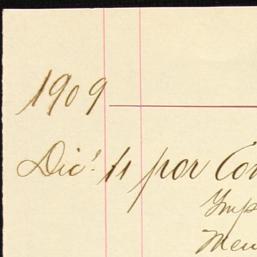 1909
Dic! 11 por Con
Imp
Men